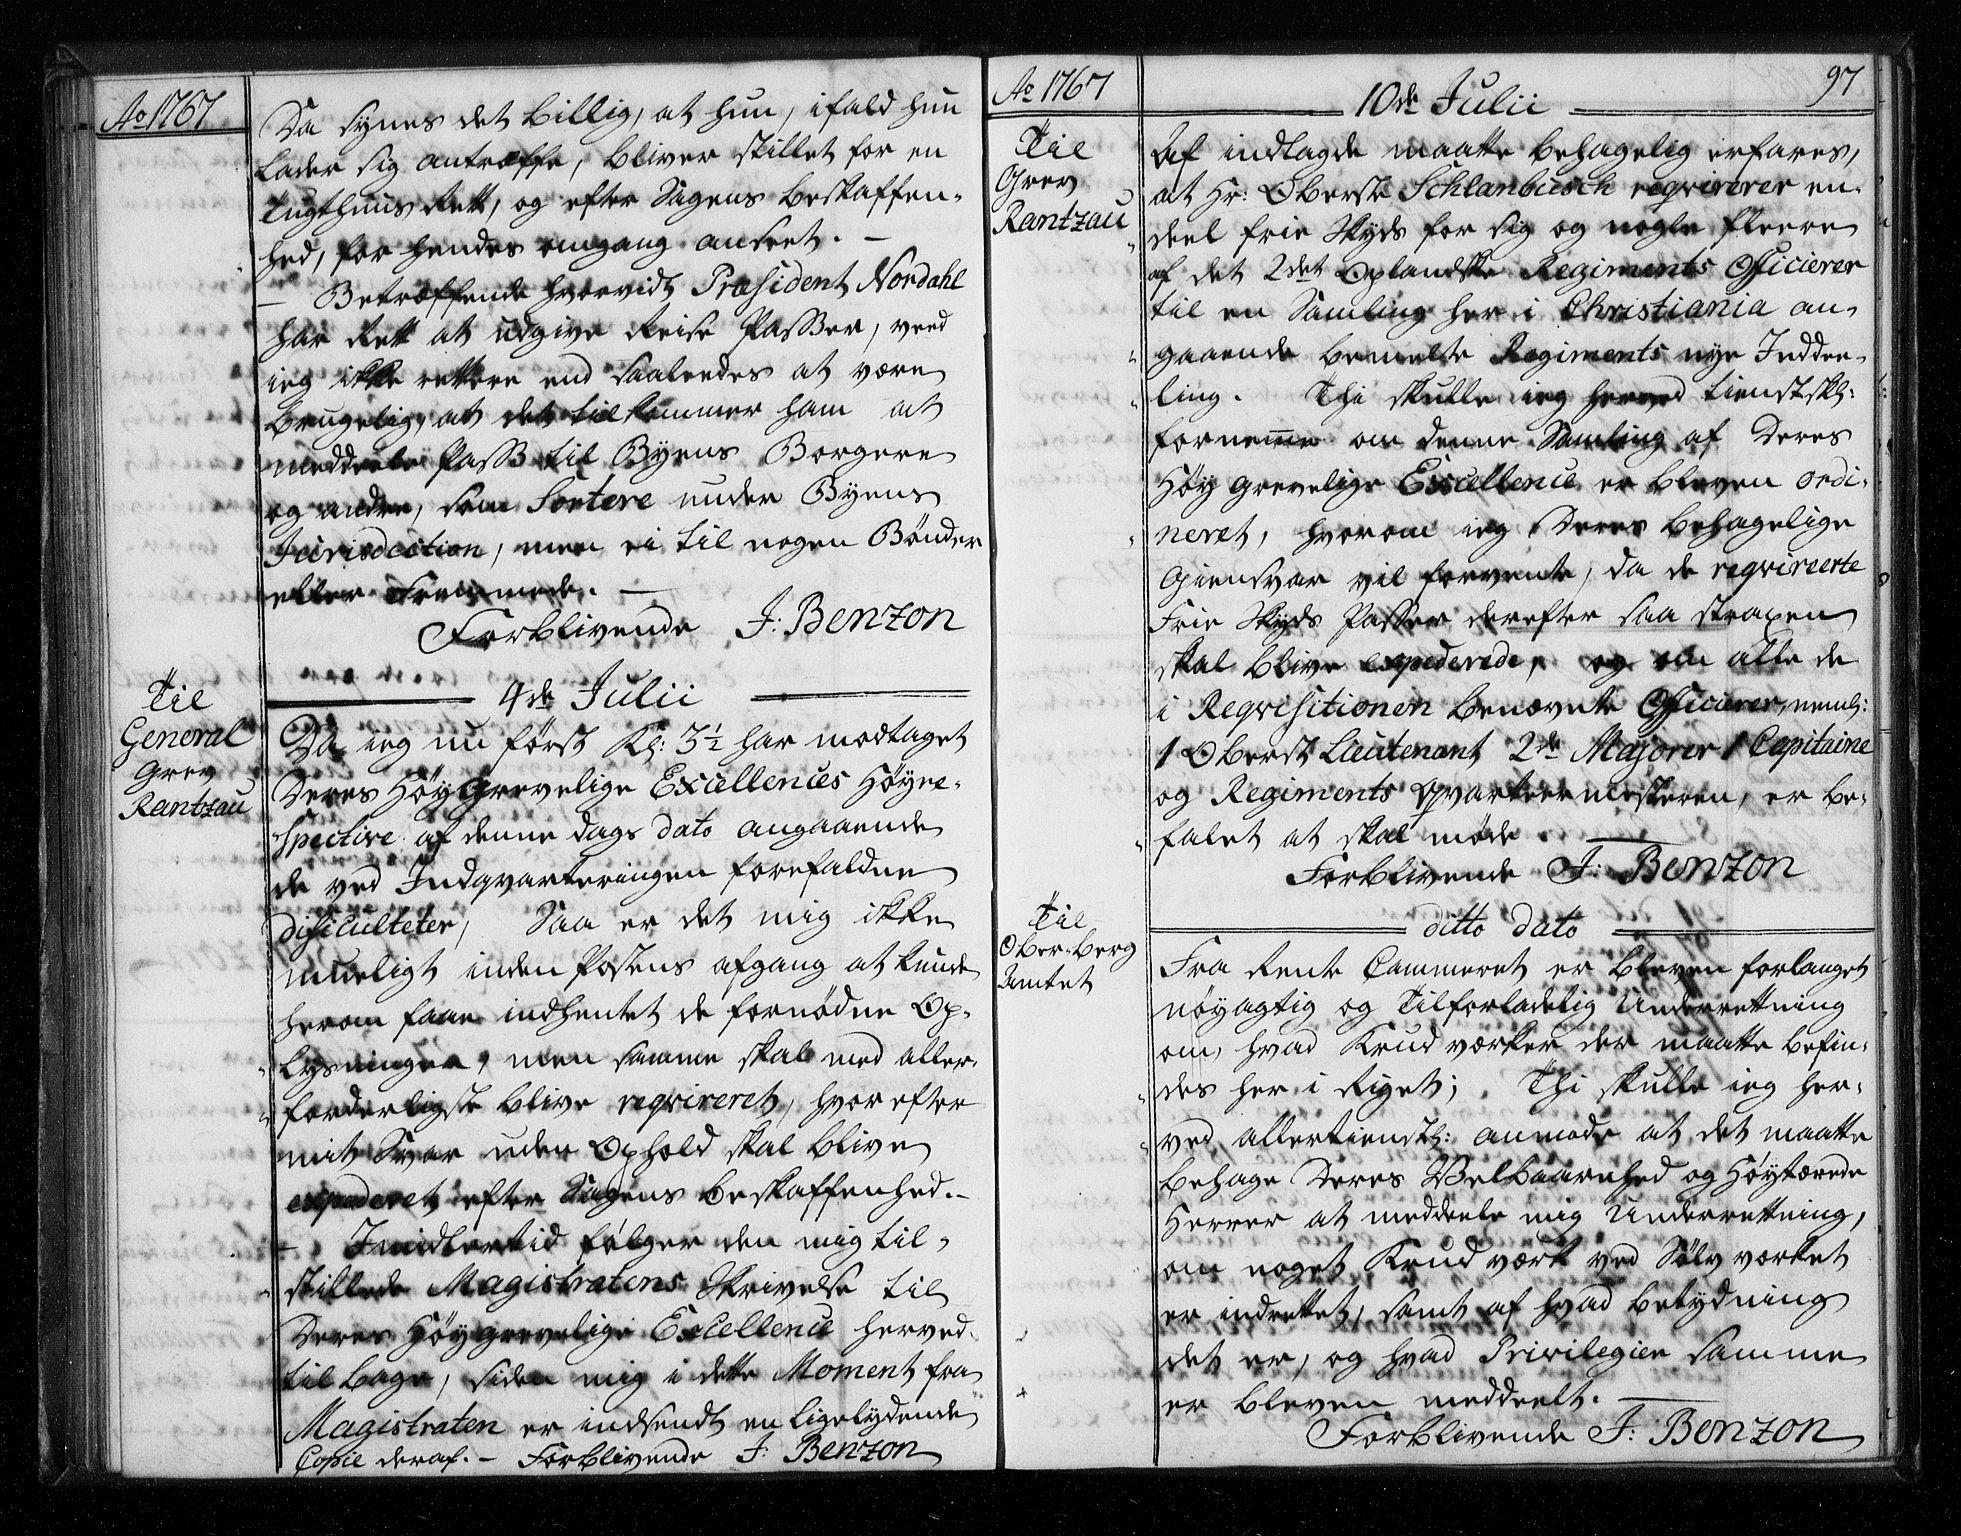 Ao 1767
Da synes det billig, at hun, ifald hun
lader sig antræffe, bliver stillet for en
Tugthuus Rett, og efter Sagens beskaffen-
hed, for hendes omgang anseet. -
- Betræffende hvorvidt Præsident Nordahl
har Rett at udgive Reise Passer, veed
ieg ikke rettere end saaledes at være
brugelig, at det tilkommer ham at
meddeele Pass til Byens Borgere
og andre, som Sortere under Byens
Jurisdiction, men ei til nogen Bønder
eller fremmede. -
Forblivende J: Benzon
4de Julii
Til
General
Grev
Rantzau
Da ieg nu først Kl: 3½ har modtaget
Deres Høy Grevelige Excellences Høyre-
spective af denne dags dato angaaende
de ved Indqvarteringen forefaldne
difficulteter, Saa er det mig ikke
mueligt inden Postens afgang at kunde
herom faae indhentet de fornødne Op-
lysninger, men samme skal med aller-
forderligste blive reqvireret, hvorefter
mit Svar uden Ophold skal blive
expederet efter Sagens beskaffenhed. -
- Imidlertid følger den mig til-
stillede Magistratens Skrivelse til
Deres Høy grevelige Excellence herved
tilbage, siden mig i dette Moment fra
Magistraten er indsendt en ligelydende
Copie deraf. - Forblivende J: Benzon
Ao 1767
10de Julii
97
Til
Grev
Rantzau
Af indlagde maatte behagelig erfares,
at Hr: Oberste Schlanbusch reqvirerer en-
deel frie Skyds for sig og nogle fleere
af det 2det Oplandske Regiments Officierer
til en Samling her i Christiania an-
gaaende bemelte Regiments nye Inddee-
ling. Thi skulle ieg herved tienstskl:
fornemme om denne Samling af Deres
Høy grevelige Excellence er bleven ordi-
neret, hvorom ieg Deres behagelige
Giensvar vil forvente, da de reqvireerte
Frie Skyds Passer derefter saa strapen
skal blive expederede, og om alle de
i Reqvisitionen benævnte Officierer, neml:
1 Oberst Lieutenant 2de Majorer 1 Capitaine
og Regiments Qvarteermesteren, er be-
falet at skal møde. -
Forblivende J: Benzon
ditto dato
Til
Ober-Berg
Amtet
Fra Rente Cammeret er bleven forlanget
nøyagtig og Tilforladelig Underrettning
om, hvad Krud værker der maatte befin-
des her i Riget; Thi skulle ieg her-
ved allertienstl: anmode at det maatte
behage Deres Velbaarnhed og Høystærede
Herrer at meddeele mig Underrettning,
om noget Krud værk ved Sølv værket
er indrettet, samt af hvad betydning
det er, og hvad Privilegier samme
er bleven meddeelt. -
Forblivende J: Benzon